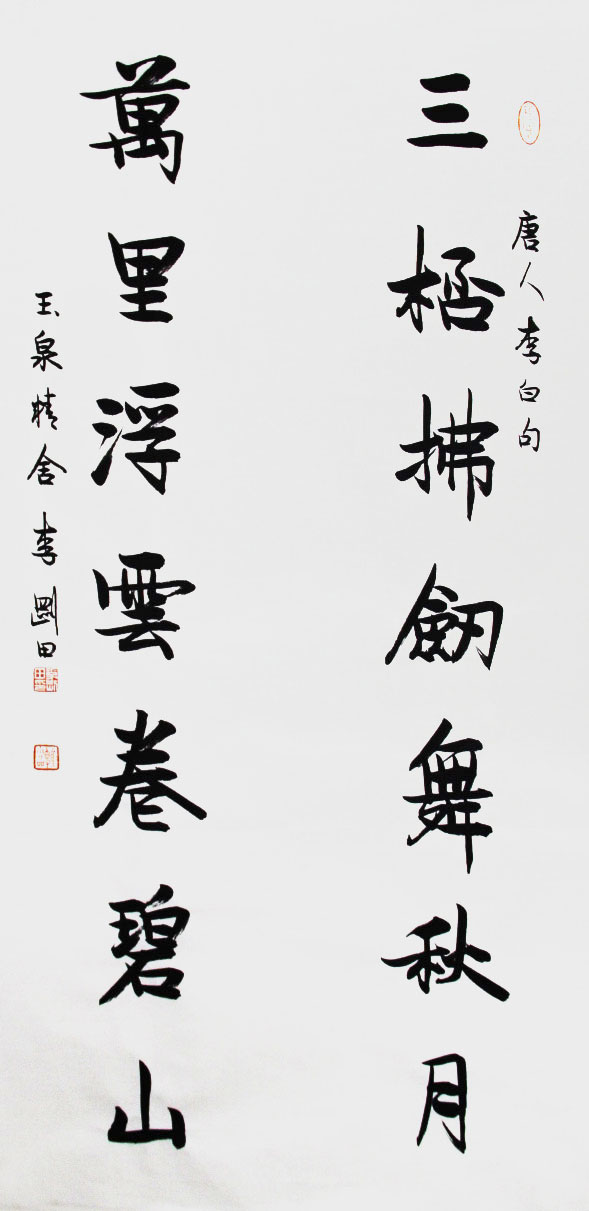 唐人李白句
三桮拂劒舞秋月
萬里浮雲卷碧山
玉泉精舍李剛田